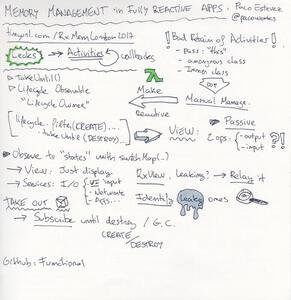 MEMORY MANAGEMENT in FULLY REACTIVE APPS · Paco Estevez
@pacoworks
tinyurl.com/RxMemLondon2017
Leaks → Activities callbacks
! Bad Retain of Activities!
- Pass "this"
- anonymous class
- Inner class
▷ TakeUntil()
▷ Lifecycle Observable
"Lifecycle Owner"
Make
Reactive
Manual Manage.
lifecycle.filter(CREATE)...
.takeUntil(DESTROY)...
View:
Passive
2 ops: - output
- input
▷ Observe to "states" with switchMap(..)
→ View: Just display
→ Services: I/O UI input
- Network
- Apis...
RxView, Leaking? → Relay it
Identify Leaky ones
TAKE OUT
→ Subscribe until destroy / G.C.
CREATE/DESTROY
Github: Functional